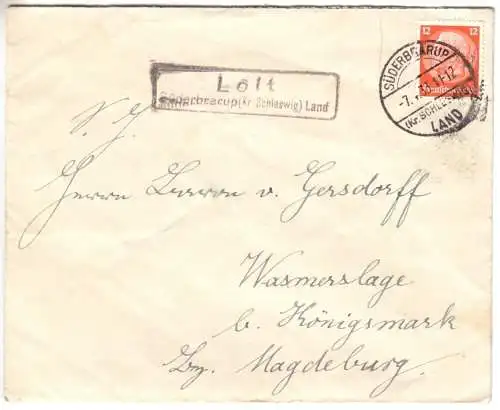 12 12
Deutsches Reich
SÜDERBRARUP
-7. 11-12
(Kr. SCHLESWIG)
LAND
Loit
Süderbrarup (Kr. Schleswig) Land
S. H.
Herrn Baron v. Gersdorff
Wasmerslage
b. Königsmark
Bz. Magdeburg.